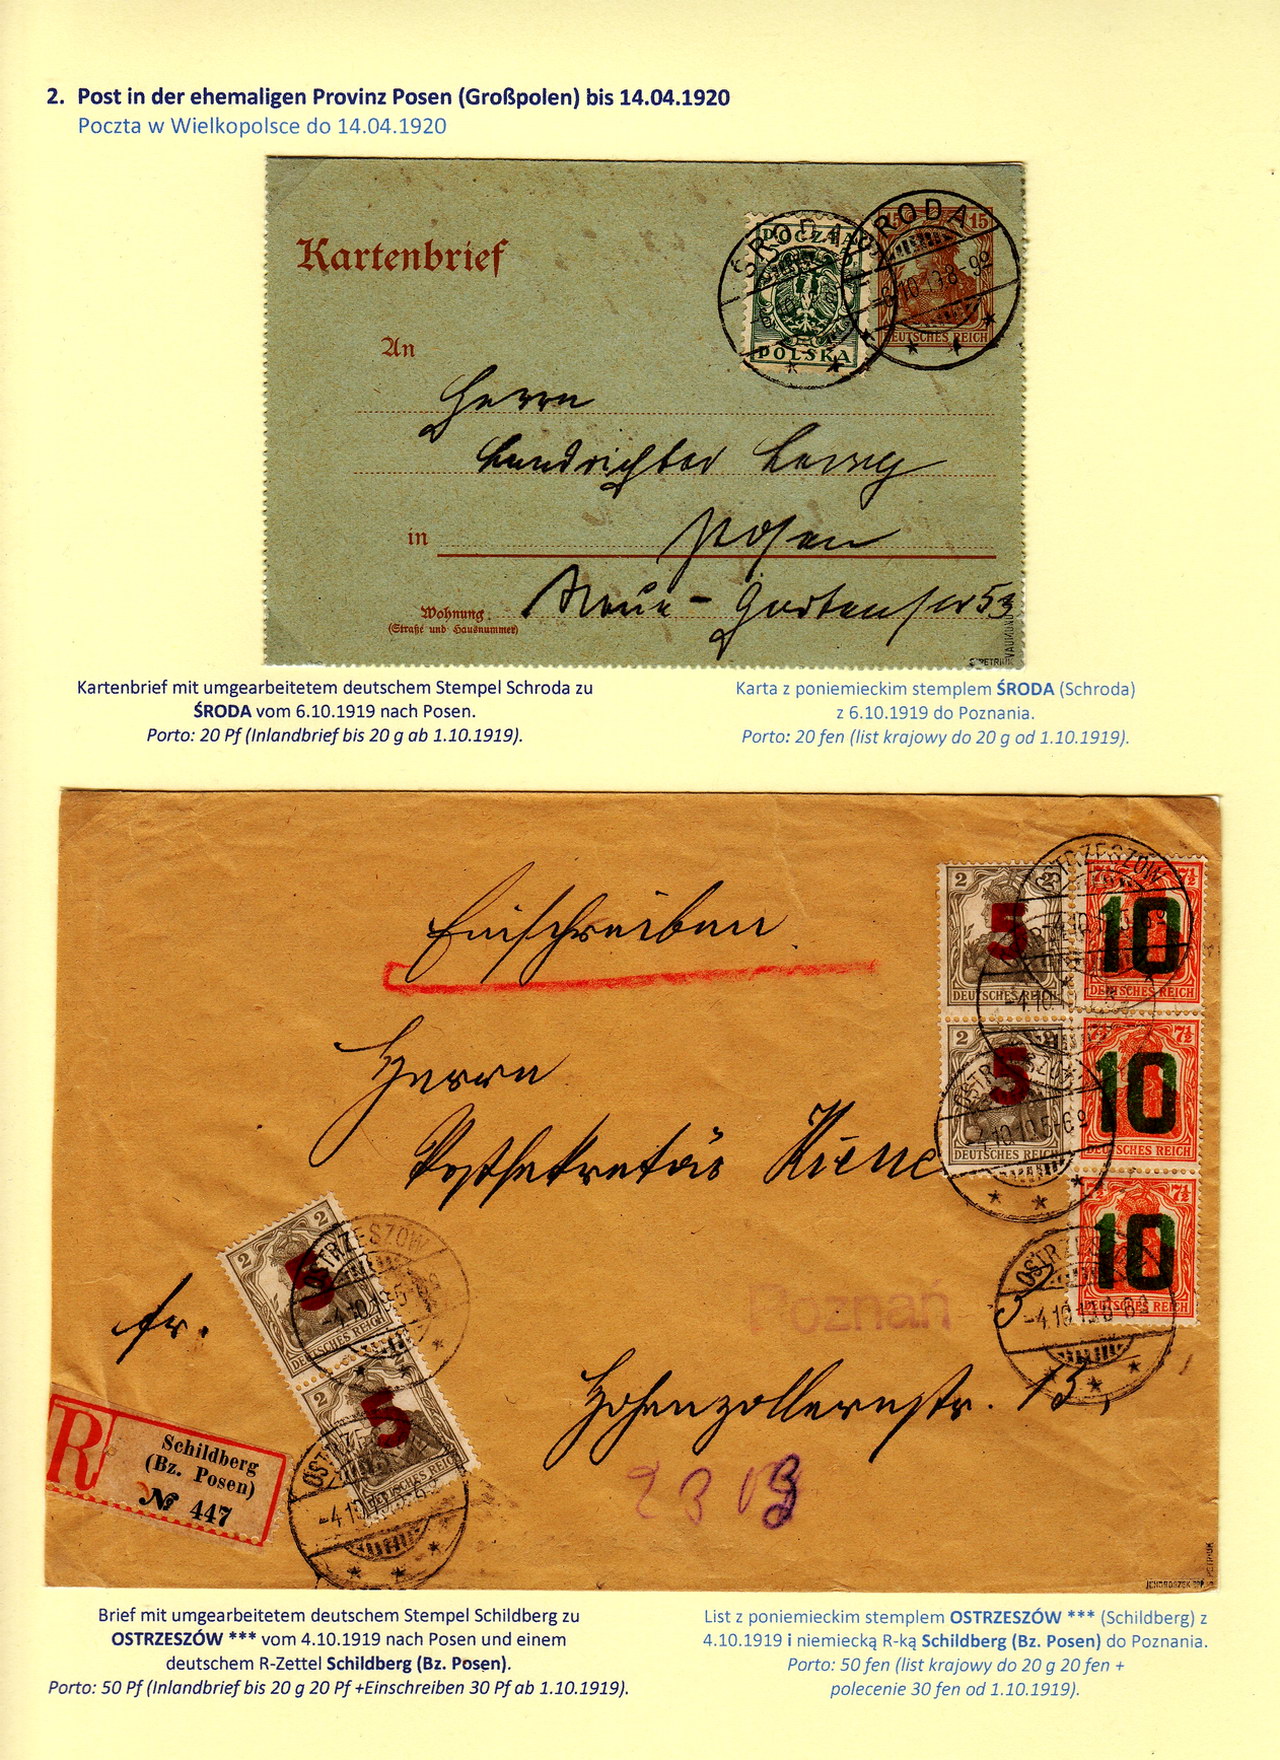 2. Post in der ehemaligen Provinz Posen (Großpolen) bis 14.04.1920
Poczta w Wielkopolsce do 14.04.1920
Kartenbrief
POCZTA
POLSKA
ŚRODA
ŚRODA
-6.10.19.8-9V
15
15
DEUTSCHES REICH
An
Herrn
Landrichter
in
Posen
Wohnung
(Straße und Hausnummer)
Neue-Gartenstr 53
Kartenbrief mit umgearbeitetem deutschem Stempel Schroda zu
ŚRODA vom 6.10.1919 nach Posen.
Porto: 20 Pf (Inlandbrief bis 20 g ab 1.10.1919).
Karta z poniemieckim stemplem ŚRODA (Schroda)
z 6.10.1919 do Poznania.
Porto: 20 fen (list krajowy do 20 g od 1.10.1919).
Einschreiben
Herrn
Postsekretär Kiene
fr.
Poznań
Hohenzollernstr. 13,
2 2
5
DEUTSCHES REICH
7½ 7½
10
DEUTSCHES REICH
2 2
5
DEUTSCHES REICH
7½
10
DEUTSCHES REICH
7½ 7½
10
DEUTSCHES REICH
OSTRZESZÓW
OSTRZESZÓW
-4.10.19.5-6
2 2
5
DEUTSCHES REICH
2
5
DEUTSCHES REICH
OSTRZESZÓW
R
Schildberg
(Bz. Posen)
№ 447
Brief mit umgearbeitetem deutschem Stempel Schildberg zu
OSTRZESZÓW *** vom 4.10.1919 nach Posen und einem
deutschem R-Zettel Schildberg (Bz. Posen).
Porto: 50 Pf (Inlandbrief bis 20 g 20 Pf +Einschreiben 30 Pf ab 1.10.1919).
List z poniemieckim stemplem OSTRZESZÓW *** (Schildberg) z
4.10.1919 i niemiecką R-ką Schildberg (Bz. Posen) do Poznania.
Porto: 50 fen (list krajowy do 20 g 20 fen +
polecenie 30 fen od 1.10.1919).